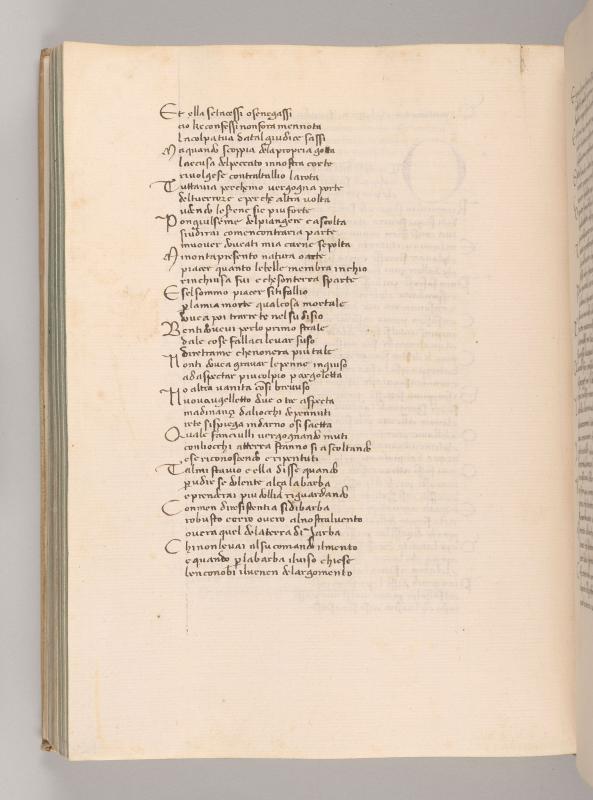 Et ella se tacessi o se negassi
cio ke confessi non fora men nota
la colpa tua da tal giudice sassi
Ma quando scoppia dela propria gota
lacusa del peccato in nostra corte
rivolge se contral tallio la rota
Tuttavia perche mo vergogna porte
del tuerrore e perche altra volta
udendo le serene sie piu forte
Pon giu lseme del piangere e ascolta
si udirai come n contraria parte
muover dovcati mia carne sepolta
Mai non ta presento natura o arte
piacer quanto le belle membra in chio
rinchiusa fui e che son terra sparte
E se l sommo piacer si ti fallio
p la mia morte qual cosa mortale
dovea poi trarre te nel su disio
Ben ti dovevi per lo primo strale
dale cose fallaci levar suso
diretrame che non era piu tale
Non ti dovea gravar le penne in giuso
ad aspectar piu colpi o pargoletta
o altra vanita con si breve uso
Nuovo ugelletto due o tre aspecta
ma dinanzi daliocchi de pennuti
rete si spiega indarno o si saetta
Quale fanciulli vergognando muti
con liocchi atterra stanno si ascoltando
e se riconoscendo e ripentuti
Tal mi stavio e ella disse quando
p udir se dolente alça la barba
e prenderai piu dollia riguardando
Con men di resistentia si dibarba
robusto cerro overo al nostral vento
overa quel dela terra di Iarba
Chi non levai al su comando il mento
e quando p la barba il viso chiese
ben conobi il venen de largomento